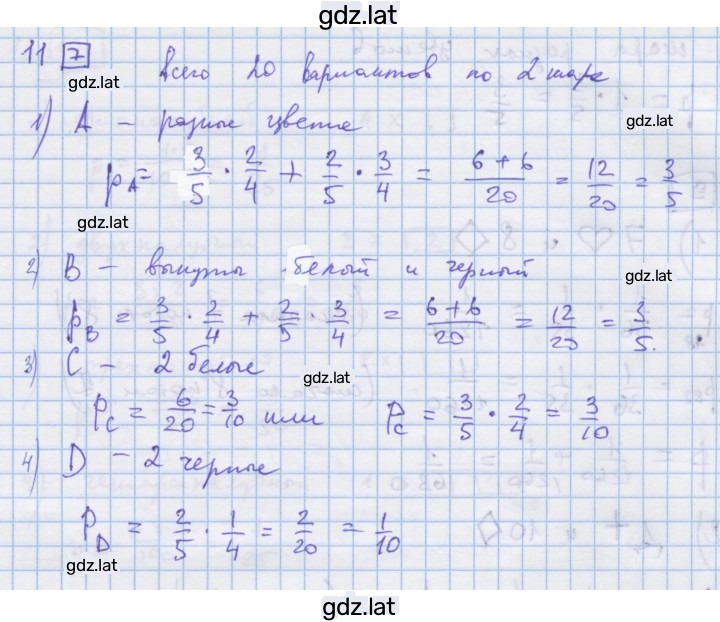 gdz.lat
11 7
gdz.lat
Всего 20 вариантов по 2 шара
1) A – разные цвета
gdz.lat
P_A = 3/5 · 2/4 + 2/5 · 3/4 = (6+6)/20 = 12/20 = 3/5
gdz.lat
2) B – вынуты белый и черный
gdz.lat
P_B = 3/5 · 2/4 + 2/5 · 3/4 = (6+6)/20 = 12/20 = 3/5.
3) C – 2 белые
gdz.lat
P_C = 6/20 = 3/10 или P_C = 3/5 · 2/4 = 3/10
4) D – 2 черные
P_D = 2/5 · 1/4 = 2/20 = 1/10
gdz.lat
gdz.lat